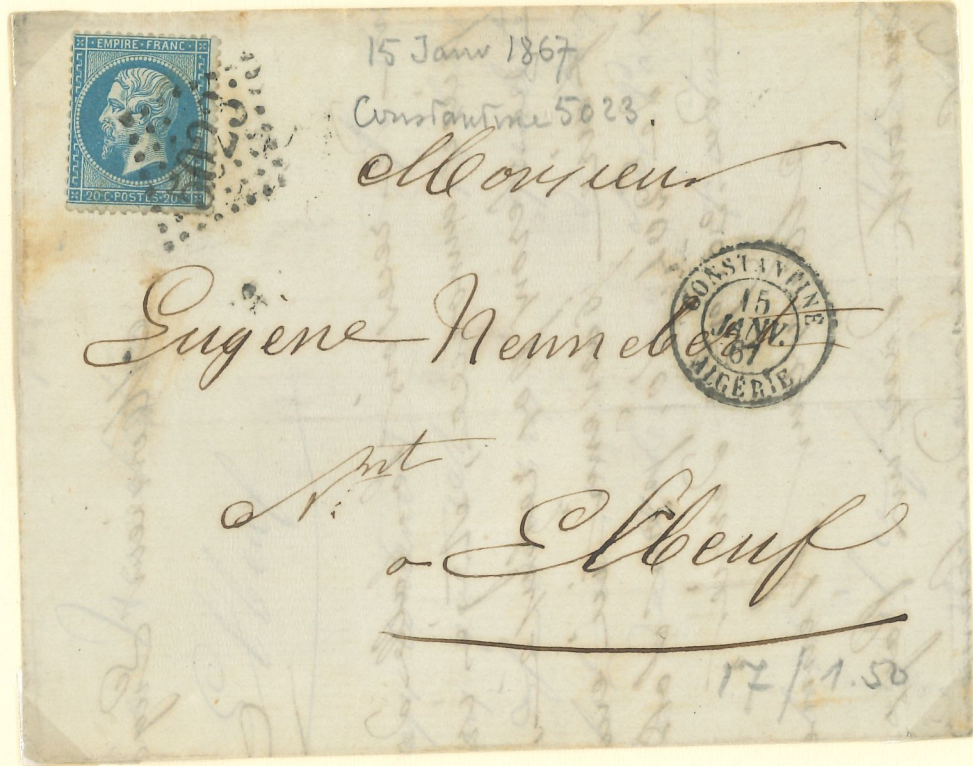 EMPIRE · FRANC
20 C · POSTES · 20 C
5023
15 Janv 1867
Constantine 5023.
Monsieur
Eugène
CONSTANTINE
15
JANV.
67
ALGÉRIE
Nt
a Elbeuf
17/1.50